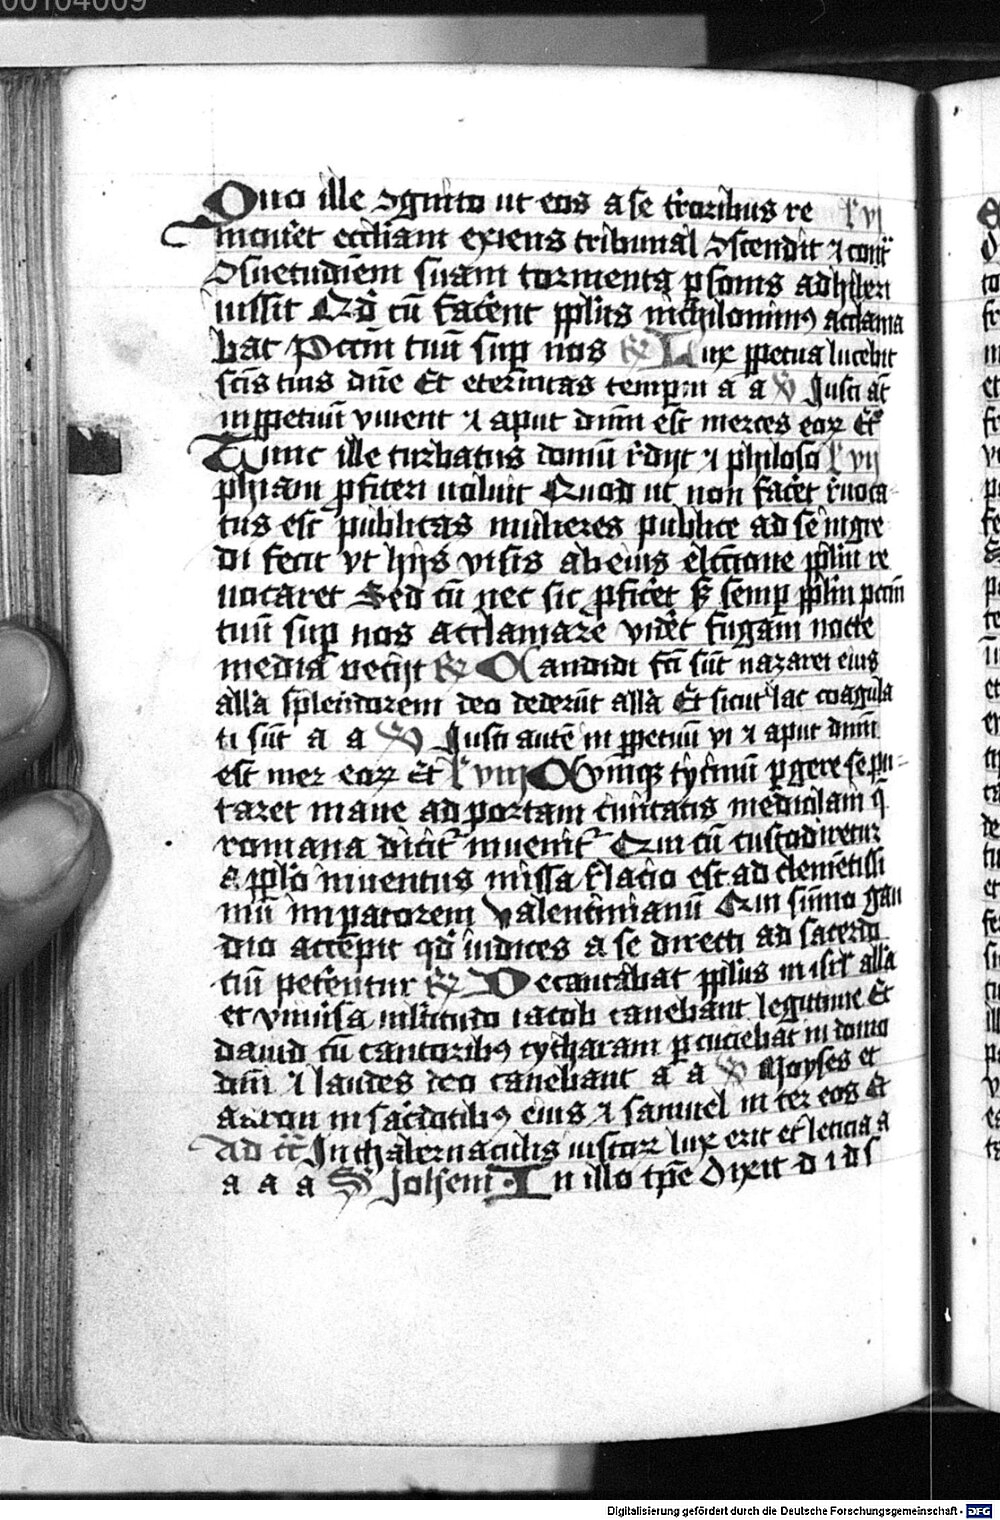 00104009
Quo ille ꝯgnito ut eos a se troribus re l' vj
mouēt eccliam exiens tribunal ꝯscendit ⁊ contˣ
ꝯsuetudiēm suam tormenta ꝑsonis adhiberi
iussit Qd̄ cū facēnt ppl̄us nichilominꝰ acclama
bat Pctm̄ tuū suꝑ nos ℟ Lux ꝑpetua lucebit
scīs tuis dn̄e Et eternitas tempꝝ a a ℣ Iusti at̄
in ꝑpetuū viuent ⁊ aput dnm̄ est merces eoꝝ Et
Tunc ille turbatus domū rediit ⁊ philoso l' vij
phiam ꝓfiteri uoluit Quod ut non facet reuoca
tus est publicas mulieres publice ad se ingre
di fecit vt hijs visis ab eius elcc̄tione ppl̄m re
uocaret Sed cū nec sic ꝓficēt sꝫ semꝑ ppl̄m pctm̄
tuū suꝑ nos acclamare videt fugam nocte
media petijt ℟ Candidi fcī sūt nazarei eius
alla splendorem deo dederūt alla Et sicut lac coagula
ti sūt a a ℣ Iusti autē in ꝑpetuū vi ⁊ aput dnm̄
est mer eoꝝ Et l' viij Cumqꝫ tycinū ꝑgere se pu-
taret mane ad portam ciuitatis mediolam̄ q̄
romana dicitˀ inuenitˀ Qui cū custodiretur
a ppl̄o inuentus missa rlacio est ad clemētissi
mū imꝑatorem Valentinianū Qui sūmo gau
dio accepit qd̄ iudices a se directi ad sacerdo
tiū peterentur ℟ Decantabat ppl̄us in isrl̄ alla
et vniuisa ml̄titudo iacob canebant legittime Et
dauid cū cantoribꝰ cytharam ꝑcuciebat in domo
dm̄ ⁊ laudes deo canebant a a ℣ Moyses et
aaron in sacdotibꝰ eius ⁊ samuel in ter eos Et
Ad tc̄ In thabernaculis iustoꝝ lux erit et leticia a
a a a S Johem̄ In illo tpe dixit d i d s
Digitalisierung gefördert durch die Deutsche Forschungsgemeinschaft - DFG